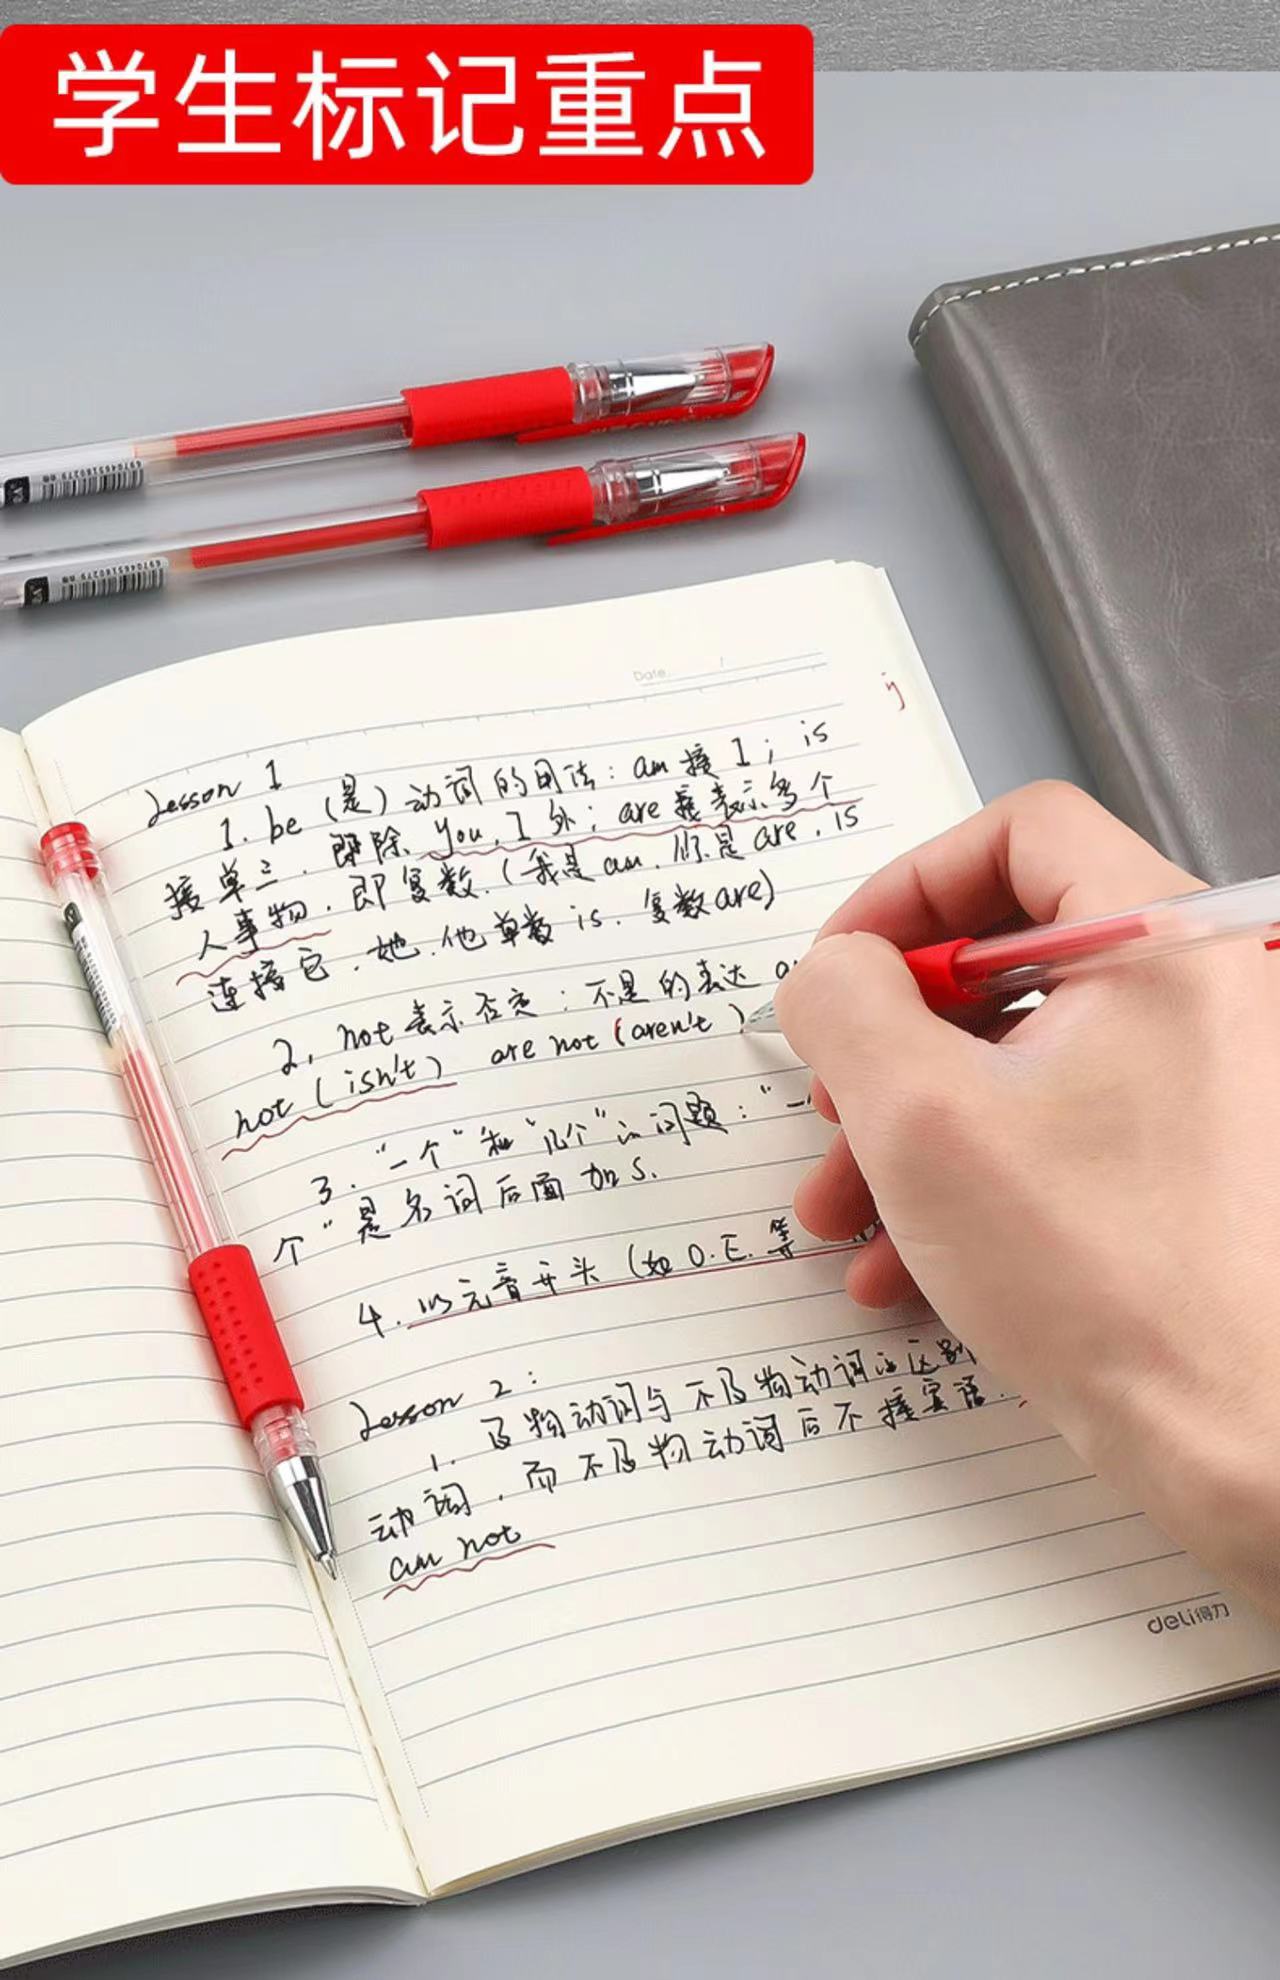 学生标记重点
6970465180279
6970465180279
Date.
Lesson 1
1. be (是) 动词的用法: am 接 I; is
接单三, 即除 you, I 外; are 接表示多个
人事物, 即复数. (我是 am, 你是 are, is
连接它, 她, 他单数 is, 复数 are)
2, not 表示否定: 不是的表达
not (isn't) are not (aren't)
3. "一个" 和 "几个" 的问题: "一
个" 是名词后面加 s.
4. 以元音开头 (如 O.E. 等
Lesson 2:
1. 及物动词与不及物动词的区别
动词, 而不及物动词后不接宾语.
am not
deli得力